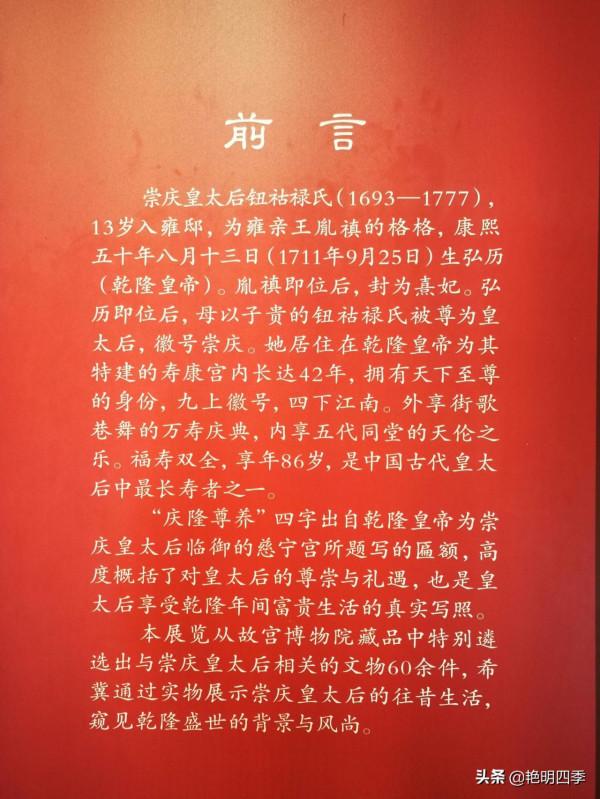 前 言
崇庆皇太后钮祜禄氏(1693—1777),
13岁入雍邸，为雍亲王胤禛的格格，康熙
五十年八月十三日(1711年9月25日)生弘历
(乾隆皇帝)。胤禛即位后，封为熹妃。弘
历即位后，母以子贵的钮祜禄氏被尊为皇
太后，徽号崇庆。她居住在乾隆皇帝为其
特建的寿康宫内长达42年，拥有天下至尊
的身份，九上徽号，四下江南。外享街歌
巷舞的万寿庆典，内享五代同堂的天伦之
乐。福寿双全，享年86岁，是中国古代皇太
后中最长寿者之一。
“庆隆尊养”四字出自乾隆皇帝为崇
庆皇太后临御的慈宁宫所题写的匾额，高
度概括了对皇太后的尊崇与礼遇，也是皇
太后享受乾隆年间富贵生活的真实写照。
本展览从故宫博物院藏品中特别遴
选出与崇庆皇太后相关的文物60余件，希
冀通过实物展示崇庆皇太后的往昔生活，
窥见乾隆盛世的背景与风尚。
头条 @艳明四季